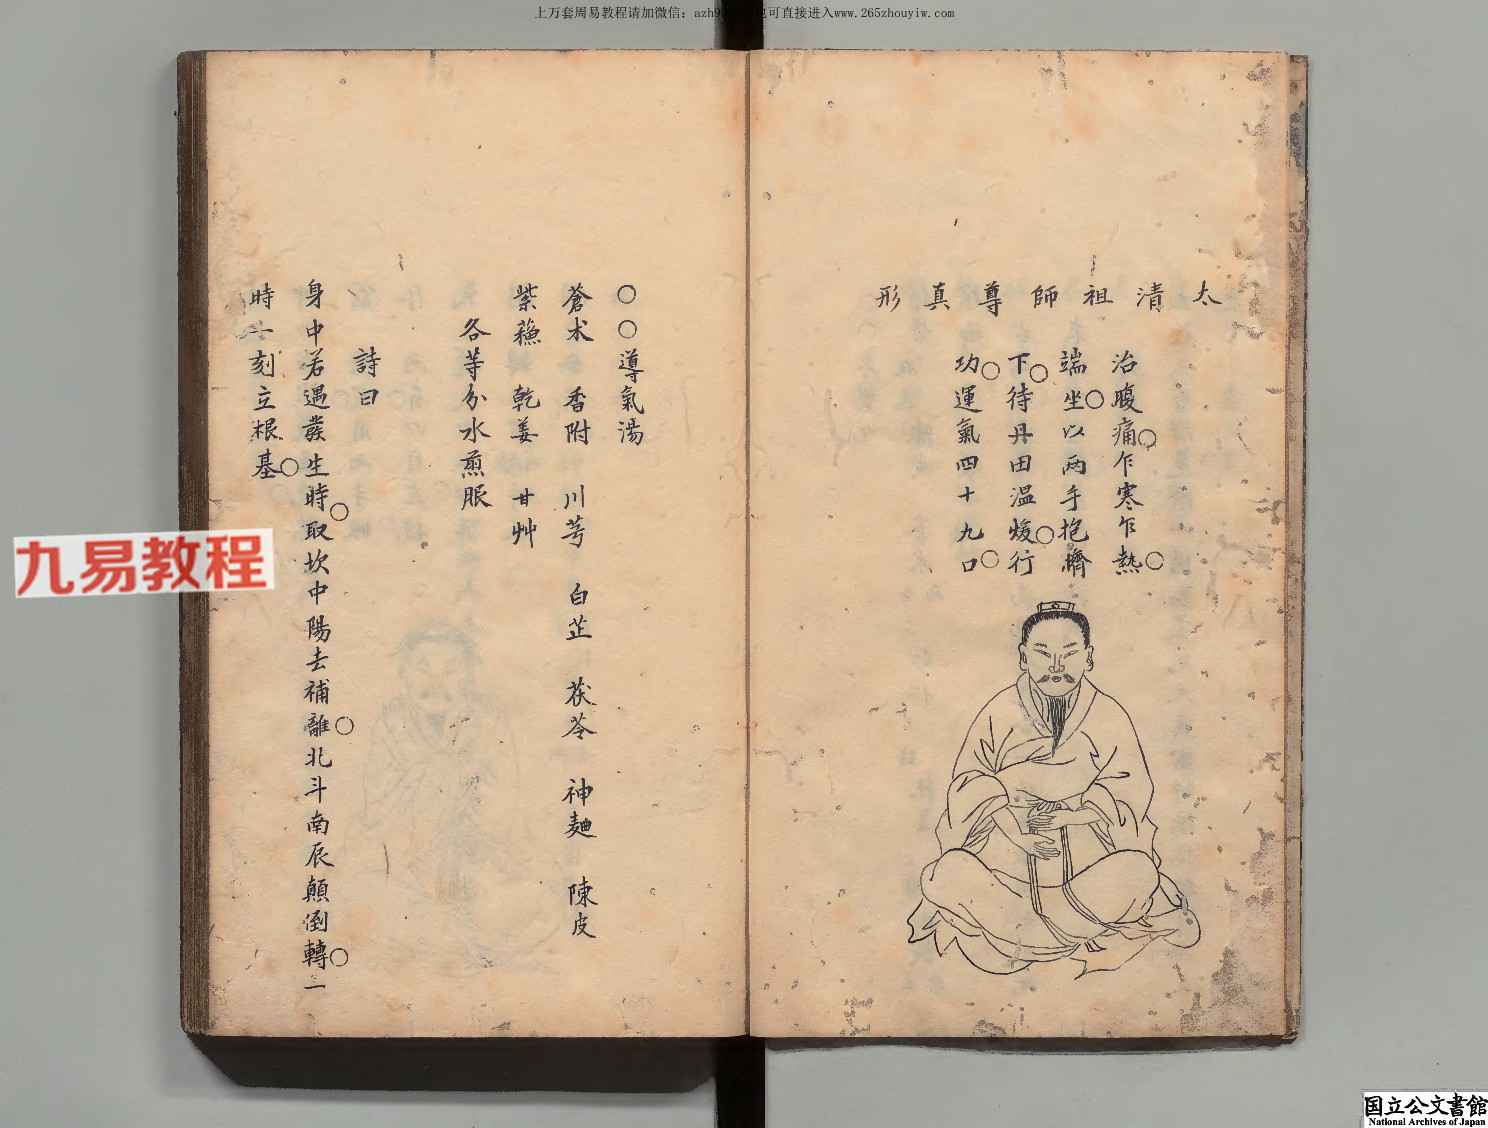 上万套周易教程请加微信：azh
也可直接进入www.265zhouyiw.com
太清祖師尊真形
治腹痛○乍寒乍熱○
端坐○以兩手抱臍
下○待丹田溫煖○行
功○運氣四十九口○
○○導氣湯
蒼朮 香附 川芎 白芷 茯苓 神麯 陳皮
紫蘓 乾姜 甘艸
各等分水煎服
詩曰
身中若遇發生時○取坎中陽去補離○北斗南辰顛倒轉○一
時一刻立根基○
九易教程
国立公文書館
National Archives of Japan